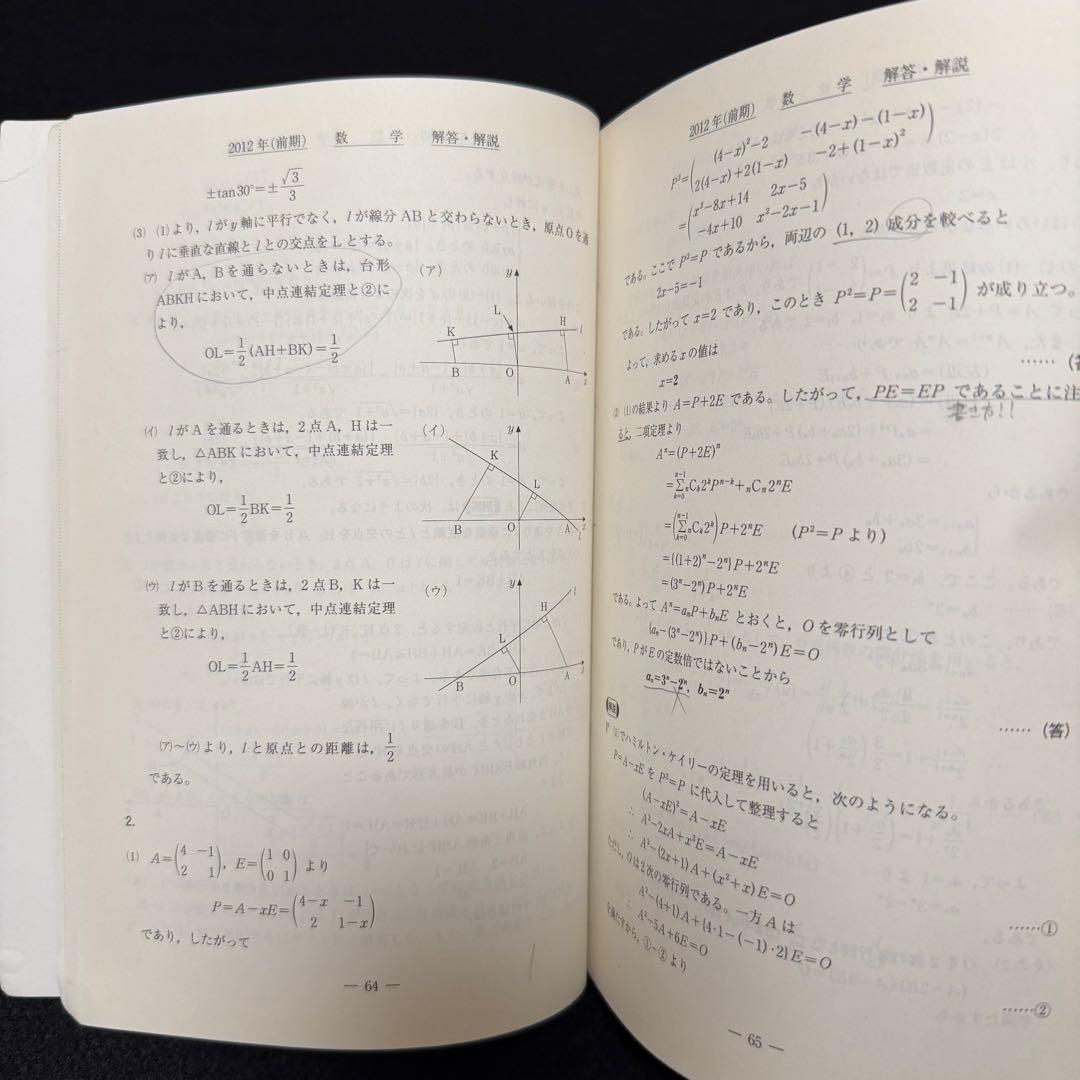 2012年(前期) 数 学 解答・解説
±tan30°=±√3/3
(3) (1)より, lがy軸に平行でなく, lが線分ABと交わらないとき, 原点Oを通
りlに垂直な直線とlとの交点をLとする。
(ア) lがA, Bを通らないときは, 台形
ABKHにおいて, 中点連結定理と②に
より,
OL=1/2(AH+BK)=1/2
(ア)
y
L
K
H
l
B
O
A
x
(イ) lがAを通るときは, 2点A, Hは一
致し, △ABKにおいて, 中点連結定理
と②により,
OL=1/2BK=1/2
(イ)
y
K
L
B
O
A
x
l
(ウ) lがBを通るときは, 2点B, Kは一
致し, △ABHにおいて, 中点連結定理
と②により,
OL=1/2AH=1/2
(ウ)
y
l
H
L
B
O
A
x
(ア)〜(ウ)より, lと原点との距離は, 1/2
である。
2.
(1) A=(4 −1 / 2 1), E=(1 0 / 0 1) より
P=A−xE=(4−x −1 / 2 1−x)
であり, したがって
— 64 —
2012年(前期) 数 学 解答・解説
P²=((4−x)²−2 −(4−x)−(1−x) / 2(4−x)+2(1−x) −2+(1−x)²)
=(x²−8x+14 2x−5 / −4x+10 x²−2x−1)
である。ここで P²=P であるから, 両辺の (1, 2) 成分を較べると
2x−5=−1
である。したがって x=2 であり, このとき P²=P=(2 −1 / 2 −1) が成り立つ。
よって, 求めるxの値は
x=2
……(答
(2) (1)の結果より A=P+2E である。したがって, PE=EP であることに注
書き方!!
ると, 二項定理より
Aⁿ=(P+2E)ⁿ
=Σ[k=0, n−1] ₙCₖ2ᵏPⁿ⁻ᵏ+ₙCₙ2ⁿE
=(Σ[k=0, n−1] ₙCₖ2ᵏ)P+2ⁿE (P²=P より)
={(1+2)ⁿ−2ⁿ}P+2ⁿE
=(3ⁿ−2ⁿ)P+2ⁿE
である。よって Aⁿ=aₙP+bₙE とおくと, Oを零行列として
{aₙ−(3ⁿ−2ⁿ)}P+(bₙ−2ⁿ)E=O
であり, PがEの定数倍ではないことから
aₙ=3ⁿ−2ⁿ, bₙ=2ⁿ
……(答)
1° (1)でハミルトン・ケイリーの定理を用いると, 次のようになる。
P=A−xE を P²=P に代入して整理すると
(A−xE)²=A−xE
∴ A²−2xA+x²E=A−xE
∴ A²−(2x+1)A+(x²+x)E=O
……①
ただし, Oは2次の零行列である。一方Aは
A²−(4+1)A+{4·1−(−1)·2}E=O
∴ A²−5A+6E=O
……②
を満たすから, ①−②より
— 65 —